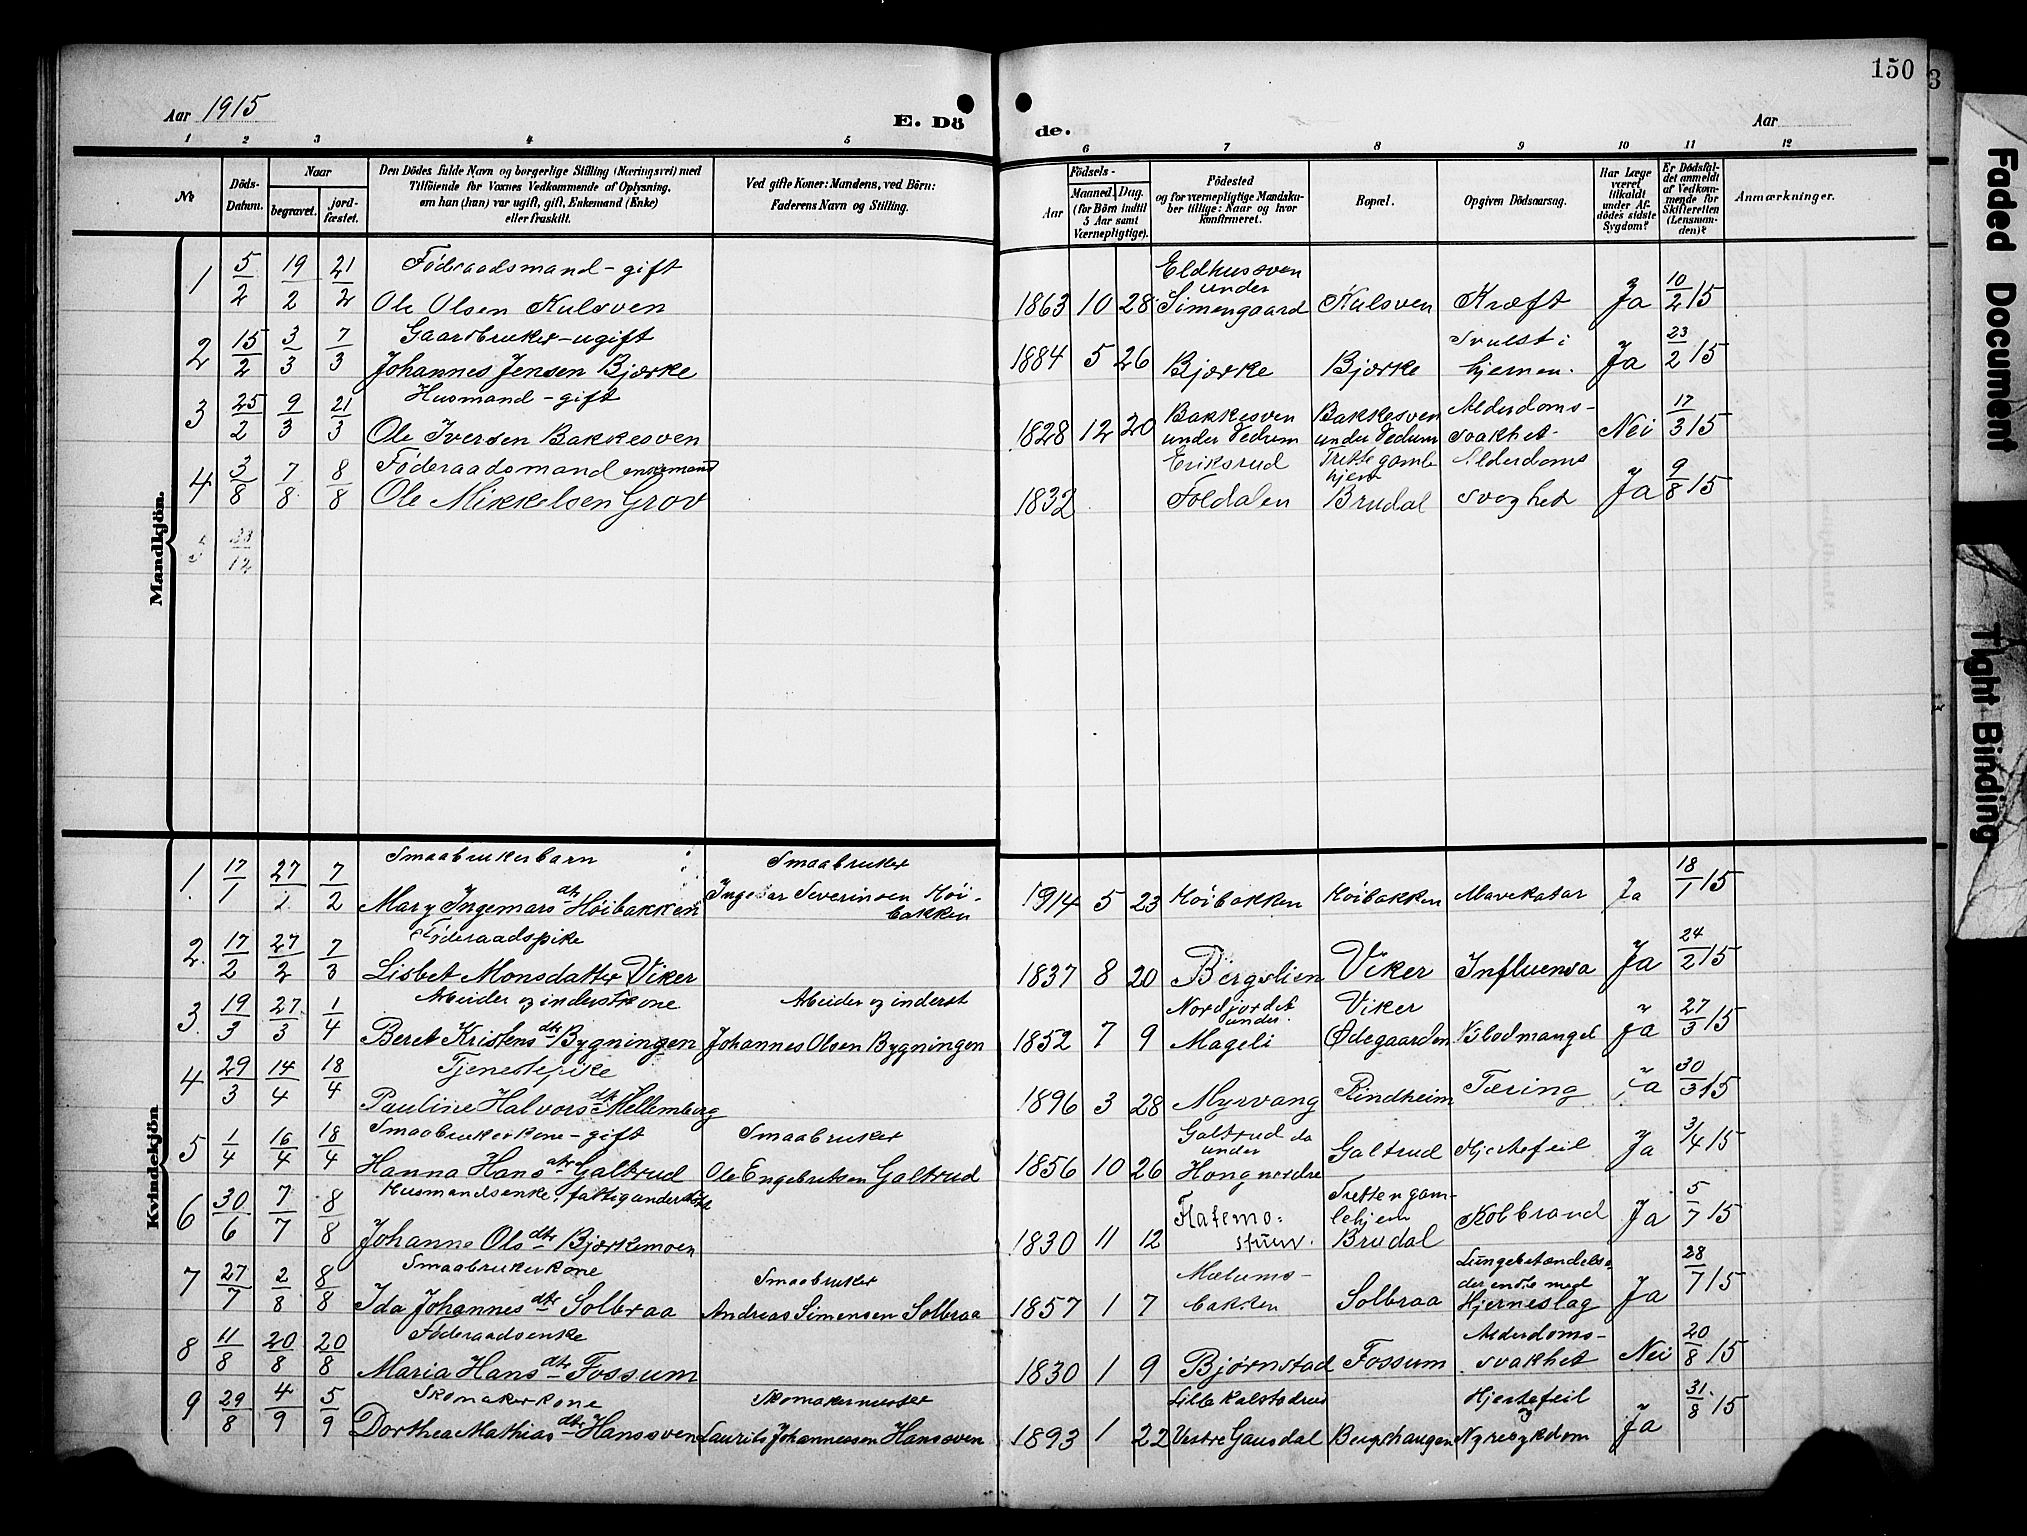 150
3
Aar 1915
E. Dö
de.
Aar
1 2 3 4 5 6 7 8 9 10 11 12
No
Döds-
Datum.
Naar
begravet.
jord-
fæstet.
Den Dödes fulde Navn og borgerlige Stilling (Næringsvei) med
Tilföiende for Voxnes Vedkommende af Oplysning,
om han (hun) var ugift, gift, Enkemand (Enke)
eller fraskilt.
Ved gifte Koner: Mandens, ved Börn:
Faderens Navn og Stilling.
Födsels-
Aar
Maaned. Dag.
(for Börn indtil
5 Aar samt
Værnepligtige).
Födested
og for værnepligtige Mandsku-
ber tillige: Naar og hvor
konfirmeret.
Bopæl.
Opgiven Dödsaarsag.
Har Læge
været
tilkaldt
under Af-
dödes sidste
Sygdom?
Er Dödsfal-
det anmeldt
af Vedkom-
mende for
Skifteretten
(Lensman-
den)?
Anmærkninger.
Mandkjön.
1 5/2 19/2 21/2 Föderaadsmand - gift
Ole Olsen Kulsven
1863 10 28 Eldhussven
under
Simengaard Kulsven Kræft Ja 10/2 15
2 15/2 3/3 7/3 Gaardbruker - ugift
Johannes Jensen Bjørke
1884 5 26 Bjørke Bjørke Svulst i
hjernen. Ja 23/2 15
3 25/2 9/3 21/3 Husmand - gift
Ole Iversen Bakkesven
1828 12 20 Bakkesven
under Vedum Bakkesven
under Vedum Alderdoms-
svakhet Nei 17/3 15
4 3/8 7/8 8/8 Föderaadsmand
Ole Mikkelsen Grov
1832 Eriksrud
Foldalen
Brudal Alderdoms
svaghet Ja 9/8 15
5
12
Kvindekjön
1. 17/1 27/1 7/2 Smaabrukerbarn
Mary Ingemars dtr Höibakken
Smaabruker
Ingemar Severinsen Höi-
bakken
1914 5 23 Höibakken Höibakken Mavekatar Ja 18/1 15
2. 17/2 27/2 7/3 Föderaadspike
Lisbet Monsdatter Viker
1837 8 20 Bergslien Viker Influensa Ja 24/2 15
3. 19/3 27/3 1/4 Arbeider og inderstkone
Beret Kristens dtr Bygningen
Arbeider og inderst
Johannes Olsen Bygningen
1852 7 9 Nordjordet
under
Mageli Viker
Ødegaarden Blodmangel Ja 27/3 15
4 29/3 14/4 18/4 Tjenestepike
Pauline Halvors dtr Mellemberg
1896 3 28 Myrvang Rindheim Tæring Ja 30/3 15
5 1/4 16/4 18/4 Smaabrukerkone - gift
Hanna Hans dtr Galtrud
Smaabruker
Ole Engebretsen Galtrud
1856 10 26 Galtrud
under
Hong nordre Galtrud Hjertefeil Ja 3/4 15
6 30/6 7/7 8/8 Husmandsenke, fattigunderstøttet
Johanne Ols dtr Bjørkemoen
1830 11 12 Flatemo-
stuen. Tretten gam-
lehjem
Brudal Kolbrand Ja 5/7 15
7 27/7 2/8 8/8 Smaabrukerkone
Ida Johannes dtr Solbraa
Smaabruker
Andreas Simensen Solbraa
1857 1 7 Mælums-
bakken Solbraa Lungebetændelse
der endte med
Hjerneslag Ja 28/7 15
8 11/8 20/8 20/8 Föderaadsenke
Maria Hans dtr Fossum
1830 1 9 Bjørnstad Fossum Alderdoms-
svakhet Nei 20/8 15
9 29/8 4/9 5/9 Skomakerkone
Dorthea Mathias dtr Hanssven
Skomakermester
Laurits Johannessen Hanssven
1893 1 22 Lille
Vestre Gausdal Berpshaugen Hjertefeil
og
Nyresykdom Ja 31/8 15
Faded Document
Tight Binding